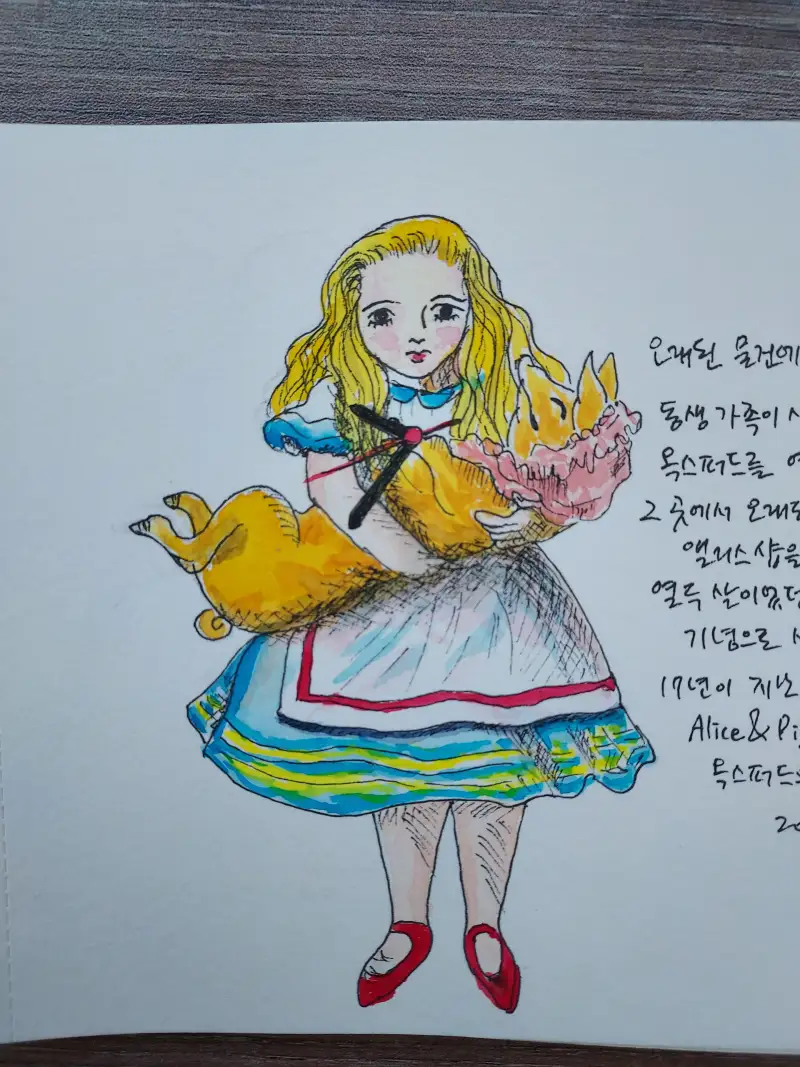 오래된 물건에
동생 가족이
옥스퍼드를
2 곳에서 오래된
앨리스샵을
열두 살이었던
기념으로
17년이 지난
Alice & Pig
옥스퍼드
20